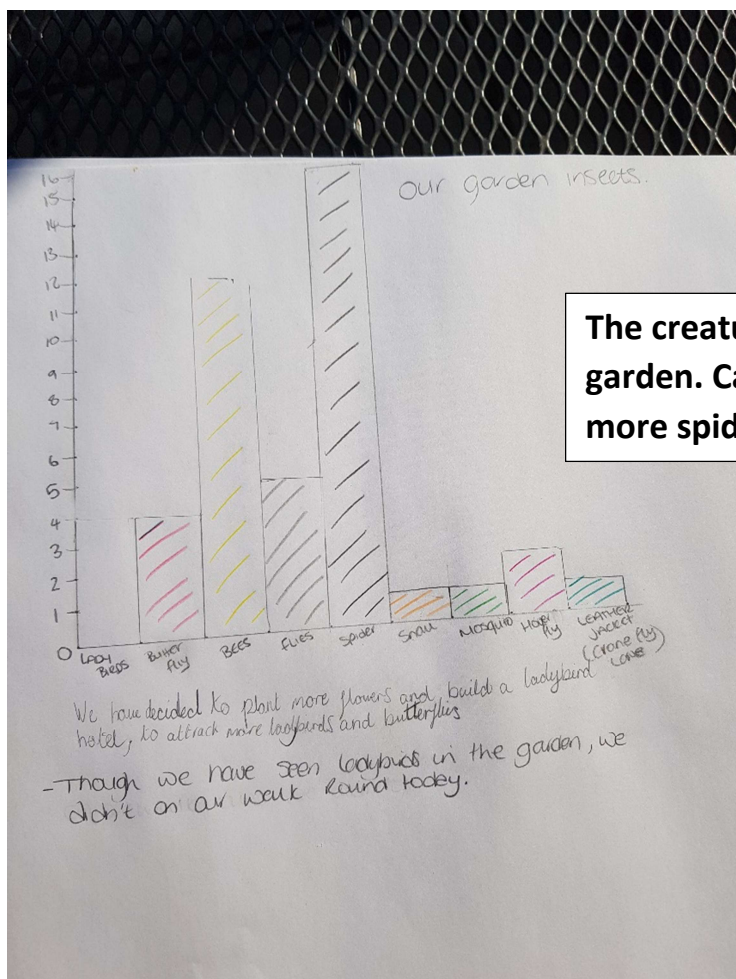 our garden insects.
16
15
14
13
12
11
10
9
8
7
6
5
4
3
2
1
0
LADY
BIRDS
Butter
fly
BEES
FLIES
Spider
Snail
MOSQUITO
Hover
fly
LEATHER
JACKET
(Crane fly)
We have decided to plant more flowers and build a ladybird
hotel, to attrack more ladybirds and butterflies
- Though we have seen ladybirds in the garden, we
didn't on our walk Round today.
The creatu
garden. Ca
more spid